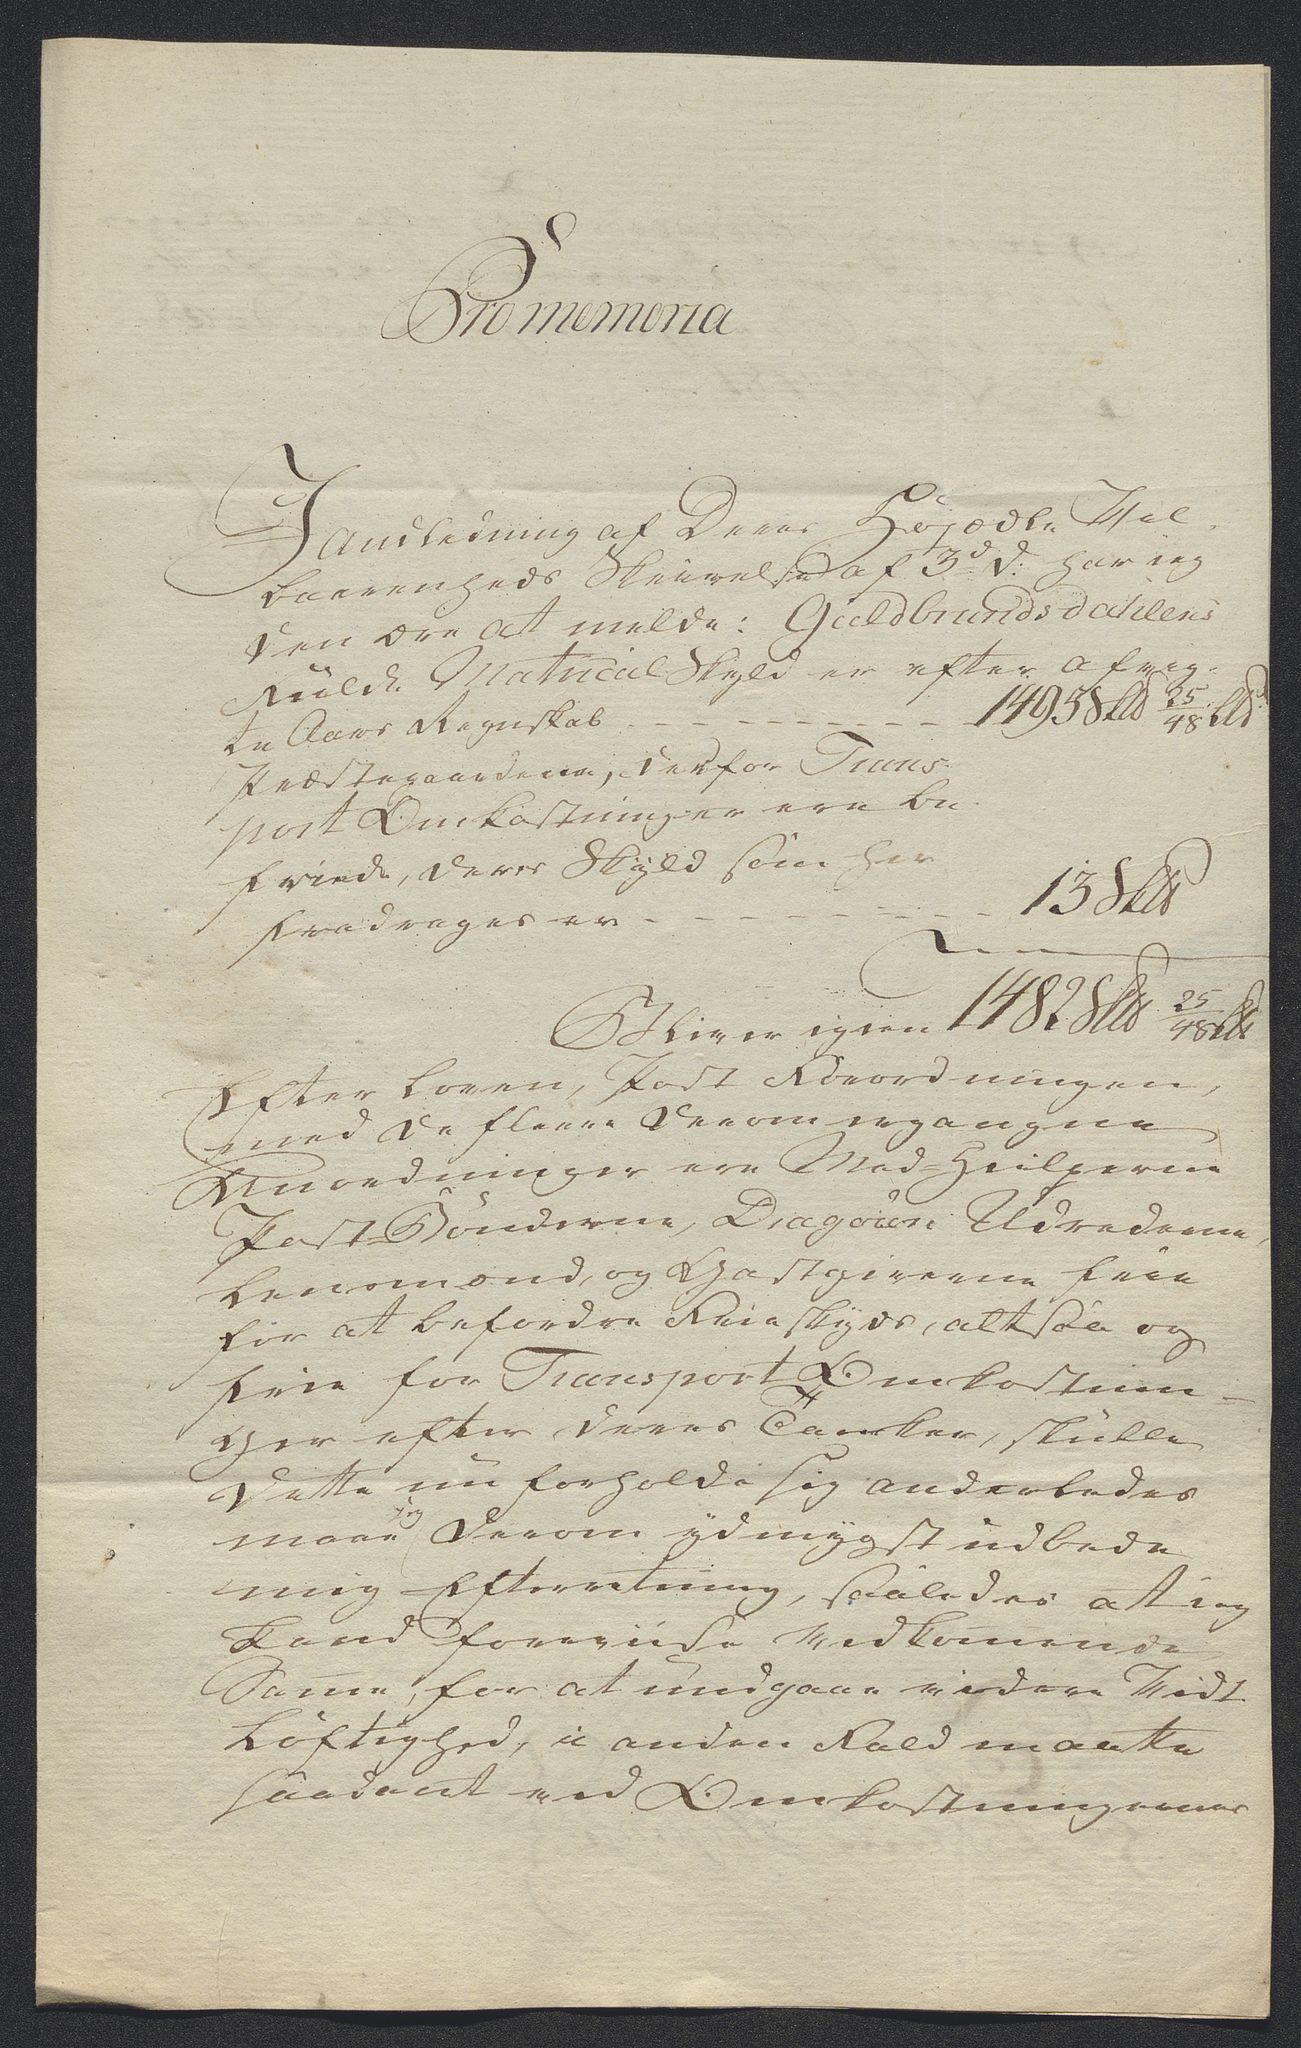 Promemoria
I Andledning af Deres Høyædle Vel
baarenheds Skrivelse af 3d. d: har ieg
den ære at melde: Guldbrandsdahlens
fulde Matricul Skyld er efter afvig-
te Aars Regnskab - - - - - - - - 1495 Skld 25/48 Skld
Præstegaardene, der for Trans-
port Omkostninger ere be-
friede, deres Skyld som her
fradrages er - - - - - - - - 13 Skld
Bliver igien 1482 Skld 25/48 Skld
Efter Loven, Post Forordningen,
med de fleere derom ergangne
Anordninger ere Med-Hielperne
Post-Bönderne, Dragoun Udrederne,
Lensmænd, og Giæstgiverne frie
for at befordre Frieskyds, altsaa og
frie for Transport Omkostnin-
ger efter deres Tanker, skulle
dette nu forholde sig anderledes
maae ieg derom ydmygst udbede
mig Efterretning, saaledes at ieg
kand foreviise Vedkommende
Samme, for at undgaae videre Vidt-
løftighed, i anden Fald maatte
saadant ved Omkostningernes